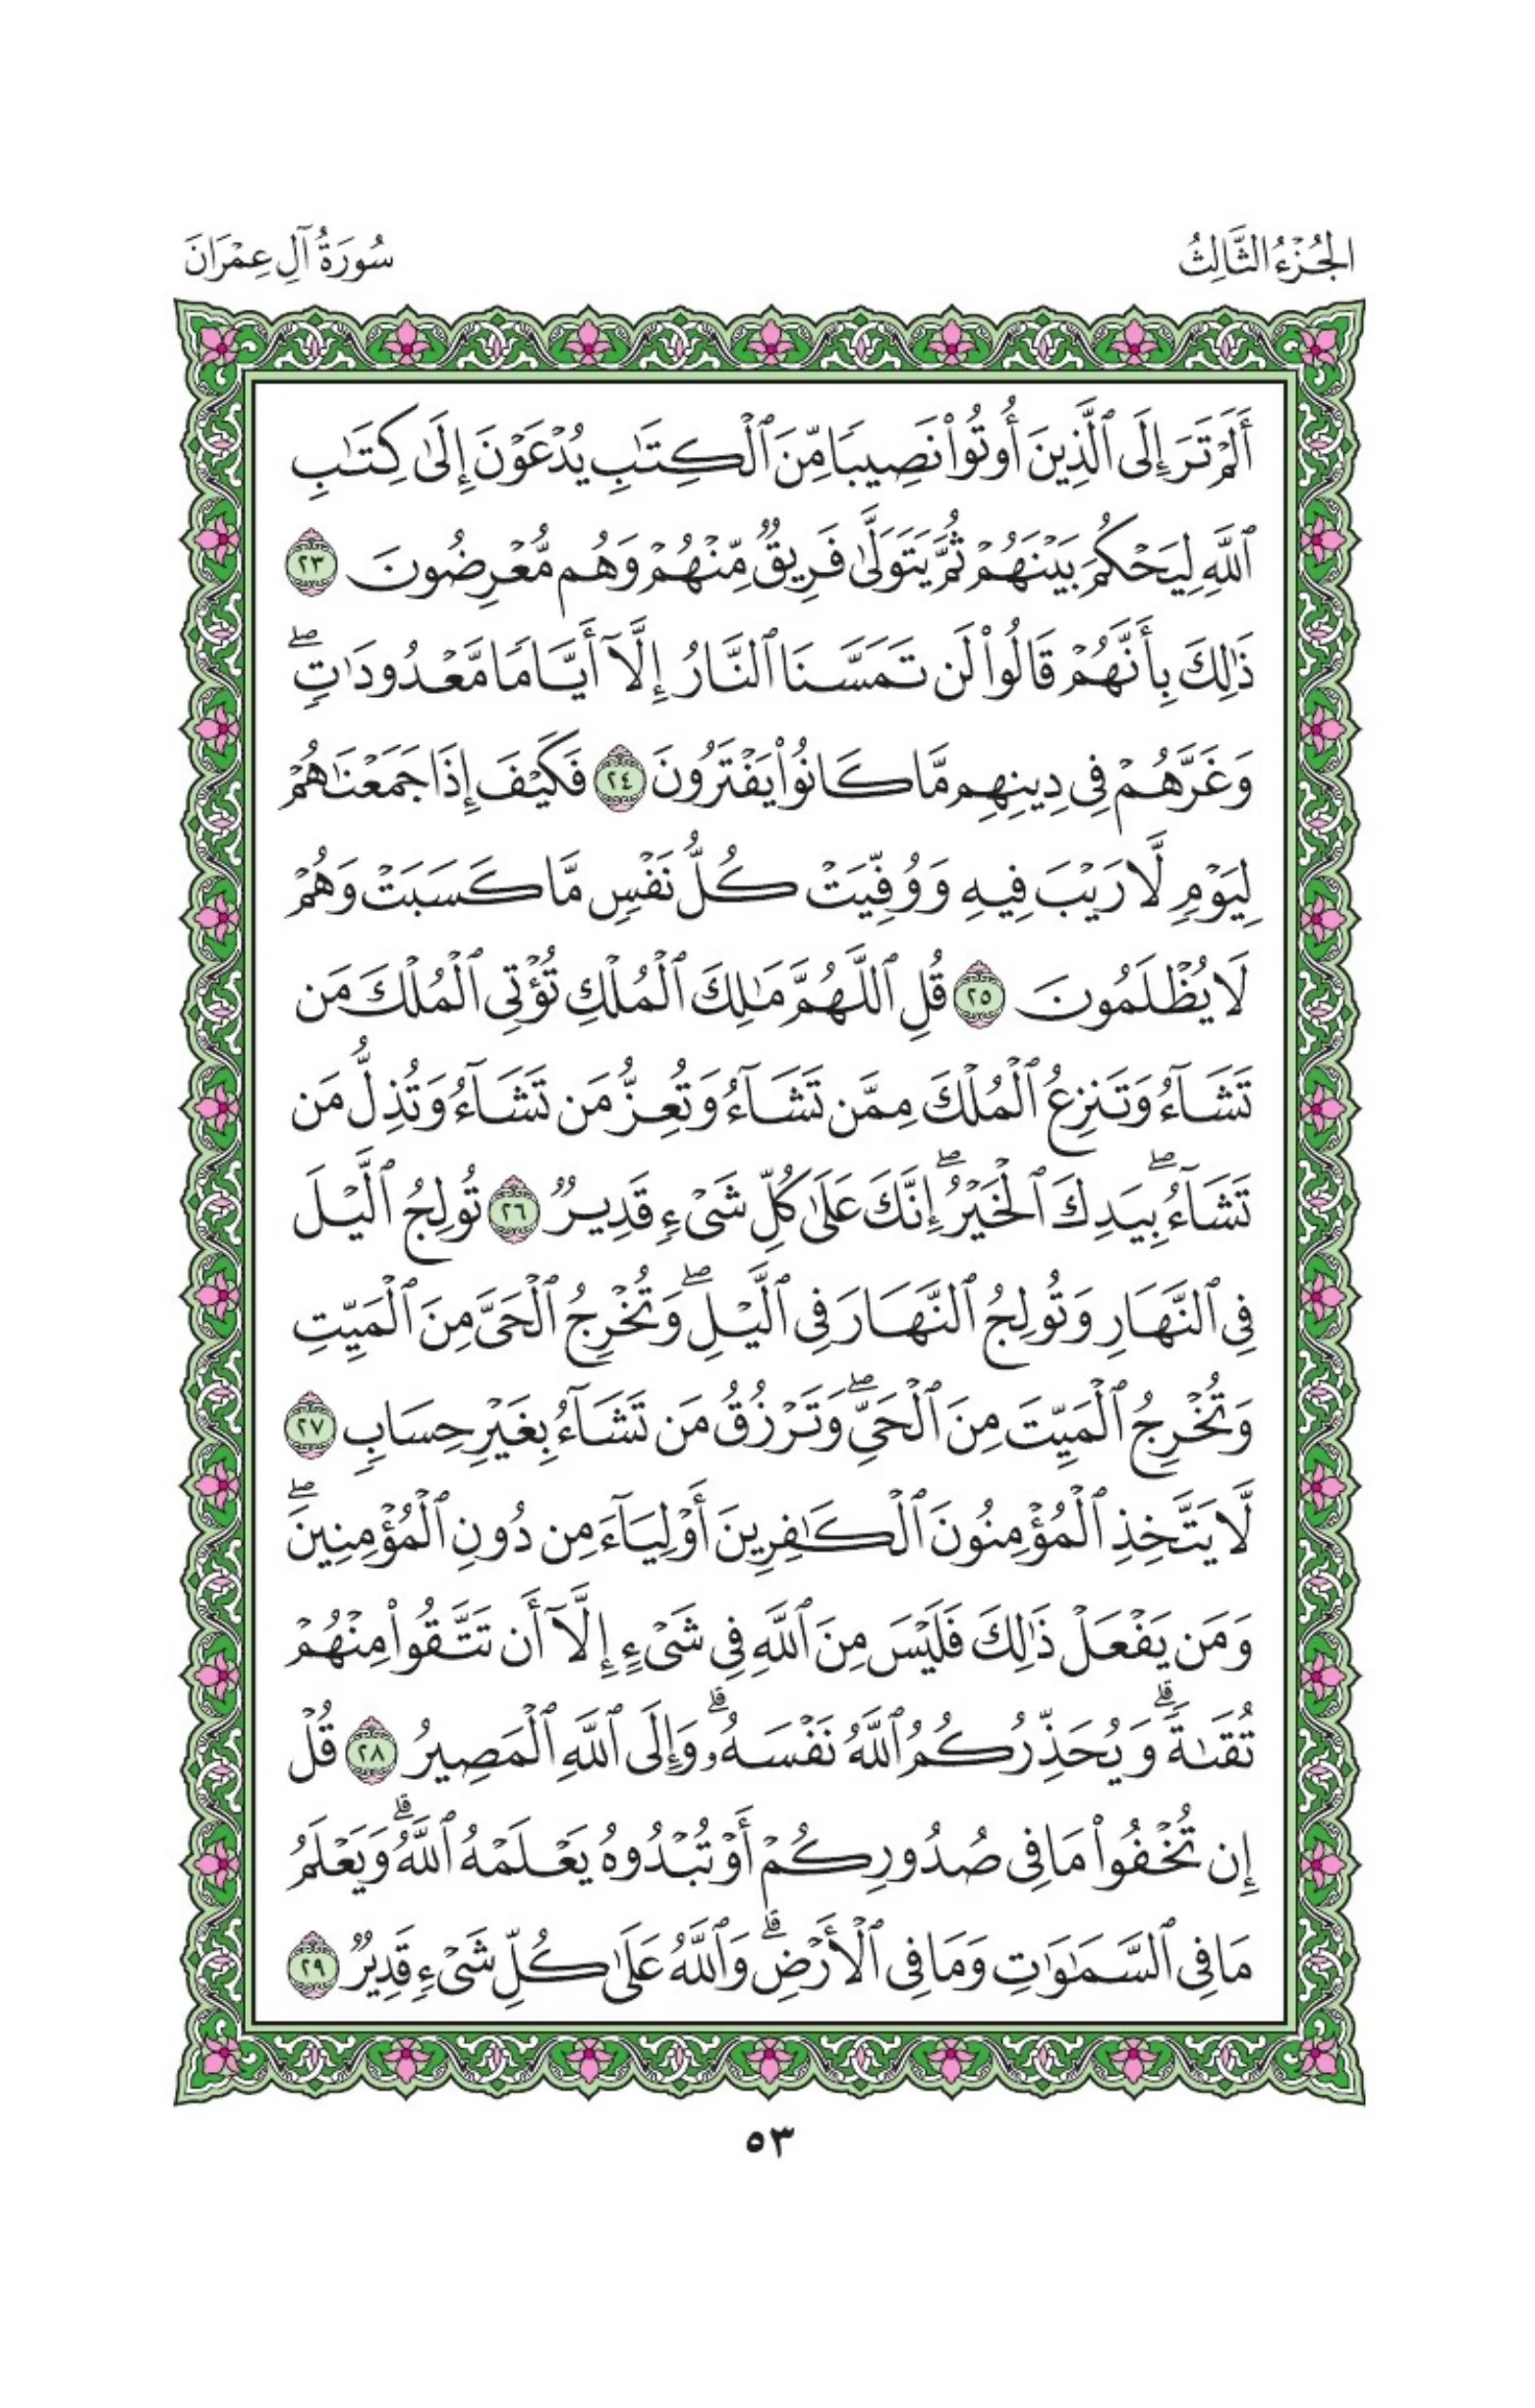 الجُزْءُ الثَّالِثُ
سُورَةُ آلِ عِمْرَانَ
أَلَمْ تَرَ إِلَى ٱلَّذِينَ أُوتُوا۟ نَصِيبًا مِّنَ ٱلْكِتَـٰبِ يُدْعَوْنَ إِلَىٰ كِتَـٰبِ
ٱللَّهِ لِيَحْكُمَ بَيْنَهُمْ ثُمَّ يَتَوَلَّىٰ فَرِيقٌ مِّنْهُمْ وَهُم مُّعْرِضُونَ ٢٣
ذَٰلِكَ بِأَنَّهُمْ قَالُوا۟ لَن تَمَسَّنَا ٱلنَّارُ إِلَّآ أَيَّامًا مَّعْدُودَٰتٍ ۖ
وَغَرَّهُمْ فِى دِينِهِم مَّا كَانُوا۟ يَفْتَرُونَ ٢٤ فَكَيْفَ إِذَا جَمَعْنَـٰهُمْ
لِيَوْمٍ لَّا رَيْبَ فِيهِ وَوُفِّيَتْ كُلُّ نَفْسٍ مَّا كَسَبَتْ وَهُمْ
لَا يُظْلَمُونَ ٢٥ قُلِ ٱللَّهُمَّ مَـٰلِكَ ٱلْمُلْكِ تُؤْتِى ٱلْمُلْكَ مَن
تَشَآءُ وَتَنزِعُ ٱلْمُلْكَ مِمَّن تَشَآءُ وَتُعِزُّ مَن تَشَآءُ وَتُذِلُّ مَن
تَشَآءُ ۖ بِيَدِكَ ٱلْخَيْرُ ۖ إِنَّكَ عَلَىٰ كُلِّ شَىْءٍ قَدِيرٌ ٢٦ تُولِجُ ٱلَّيْلَ
فِى ٱلنَّهَارِ وَتُولِجُ ٱلنَّهَارَ فِى ٱلَّيْلِ ۖ وَتُخْرِجُ ٱلْحَىَّ مِنَ ٱلْمَيِّتِ
وَتُخْرِجُ ٱلْمَيِّتَ مِنَ ٱلْحَىِّ ۖ وَتَرْزُقُ مَن تَشَآءُ بِغَيْرِ حِسَابٍ ٢٧
لَّا يَتَّخِذِ ٱلْمُؤْمِنُونَ ٱلْكَـٰفِرِينَ أَوْلِيَآءَ مِن دُونِ ٱلْمُؤْمِنِينَ ۖ
وَمَن يَفْعَلْ ذَٰلِكَ فَلَيْسَ مِنَ ٱللَّهِ فِى شَىْءٍ إِلَّآ أَن تَتَّقُوا۟ مِنْهُمْ
تُقَىٰةً ۗ وَيُحَذِّرُكُمُ ٱللَّهُ نَفْسَهُۥ ۗ وَإِلَى ٱللَّهِ ٱلْمَصِيرُ ٢٨ قُلْ
إِن تُخْفُوا۟ مَا فِى صُدُورِكُمْ أَوْ تُبْدُوهُ يَعْلَمْهُ ٱللَّهُ ۗ وَيَعْلَمُ
مَا فِى ٱلسَّمَـٰوَٰتِ وَمَا فِى ٱلْأَرْضِ ۗ وَٱللَّهُ عَلَىٰ كُلِّ شَىْءٍ قَدِيرٌ ٢٩
٥٣